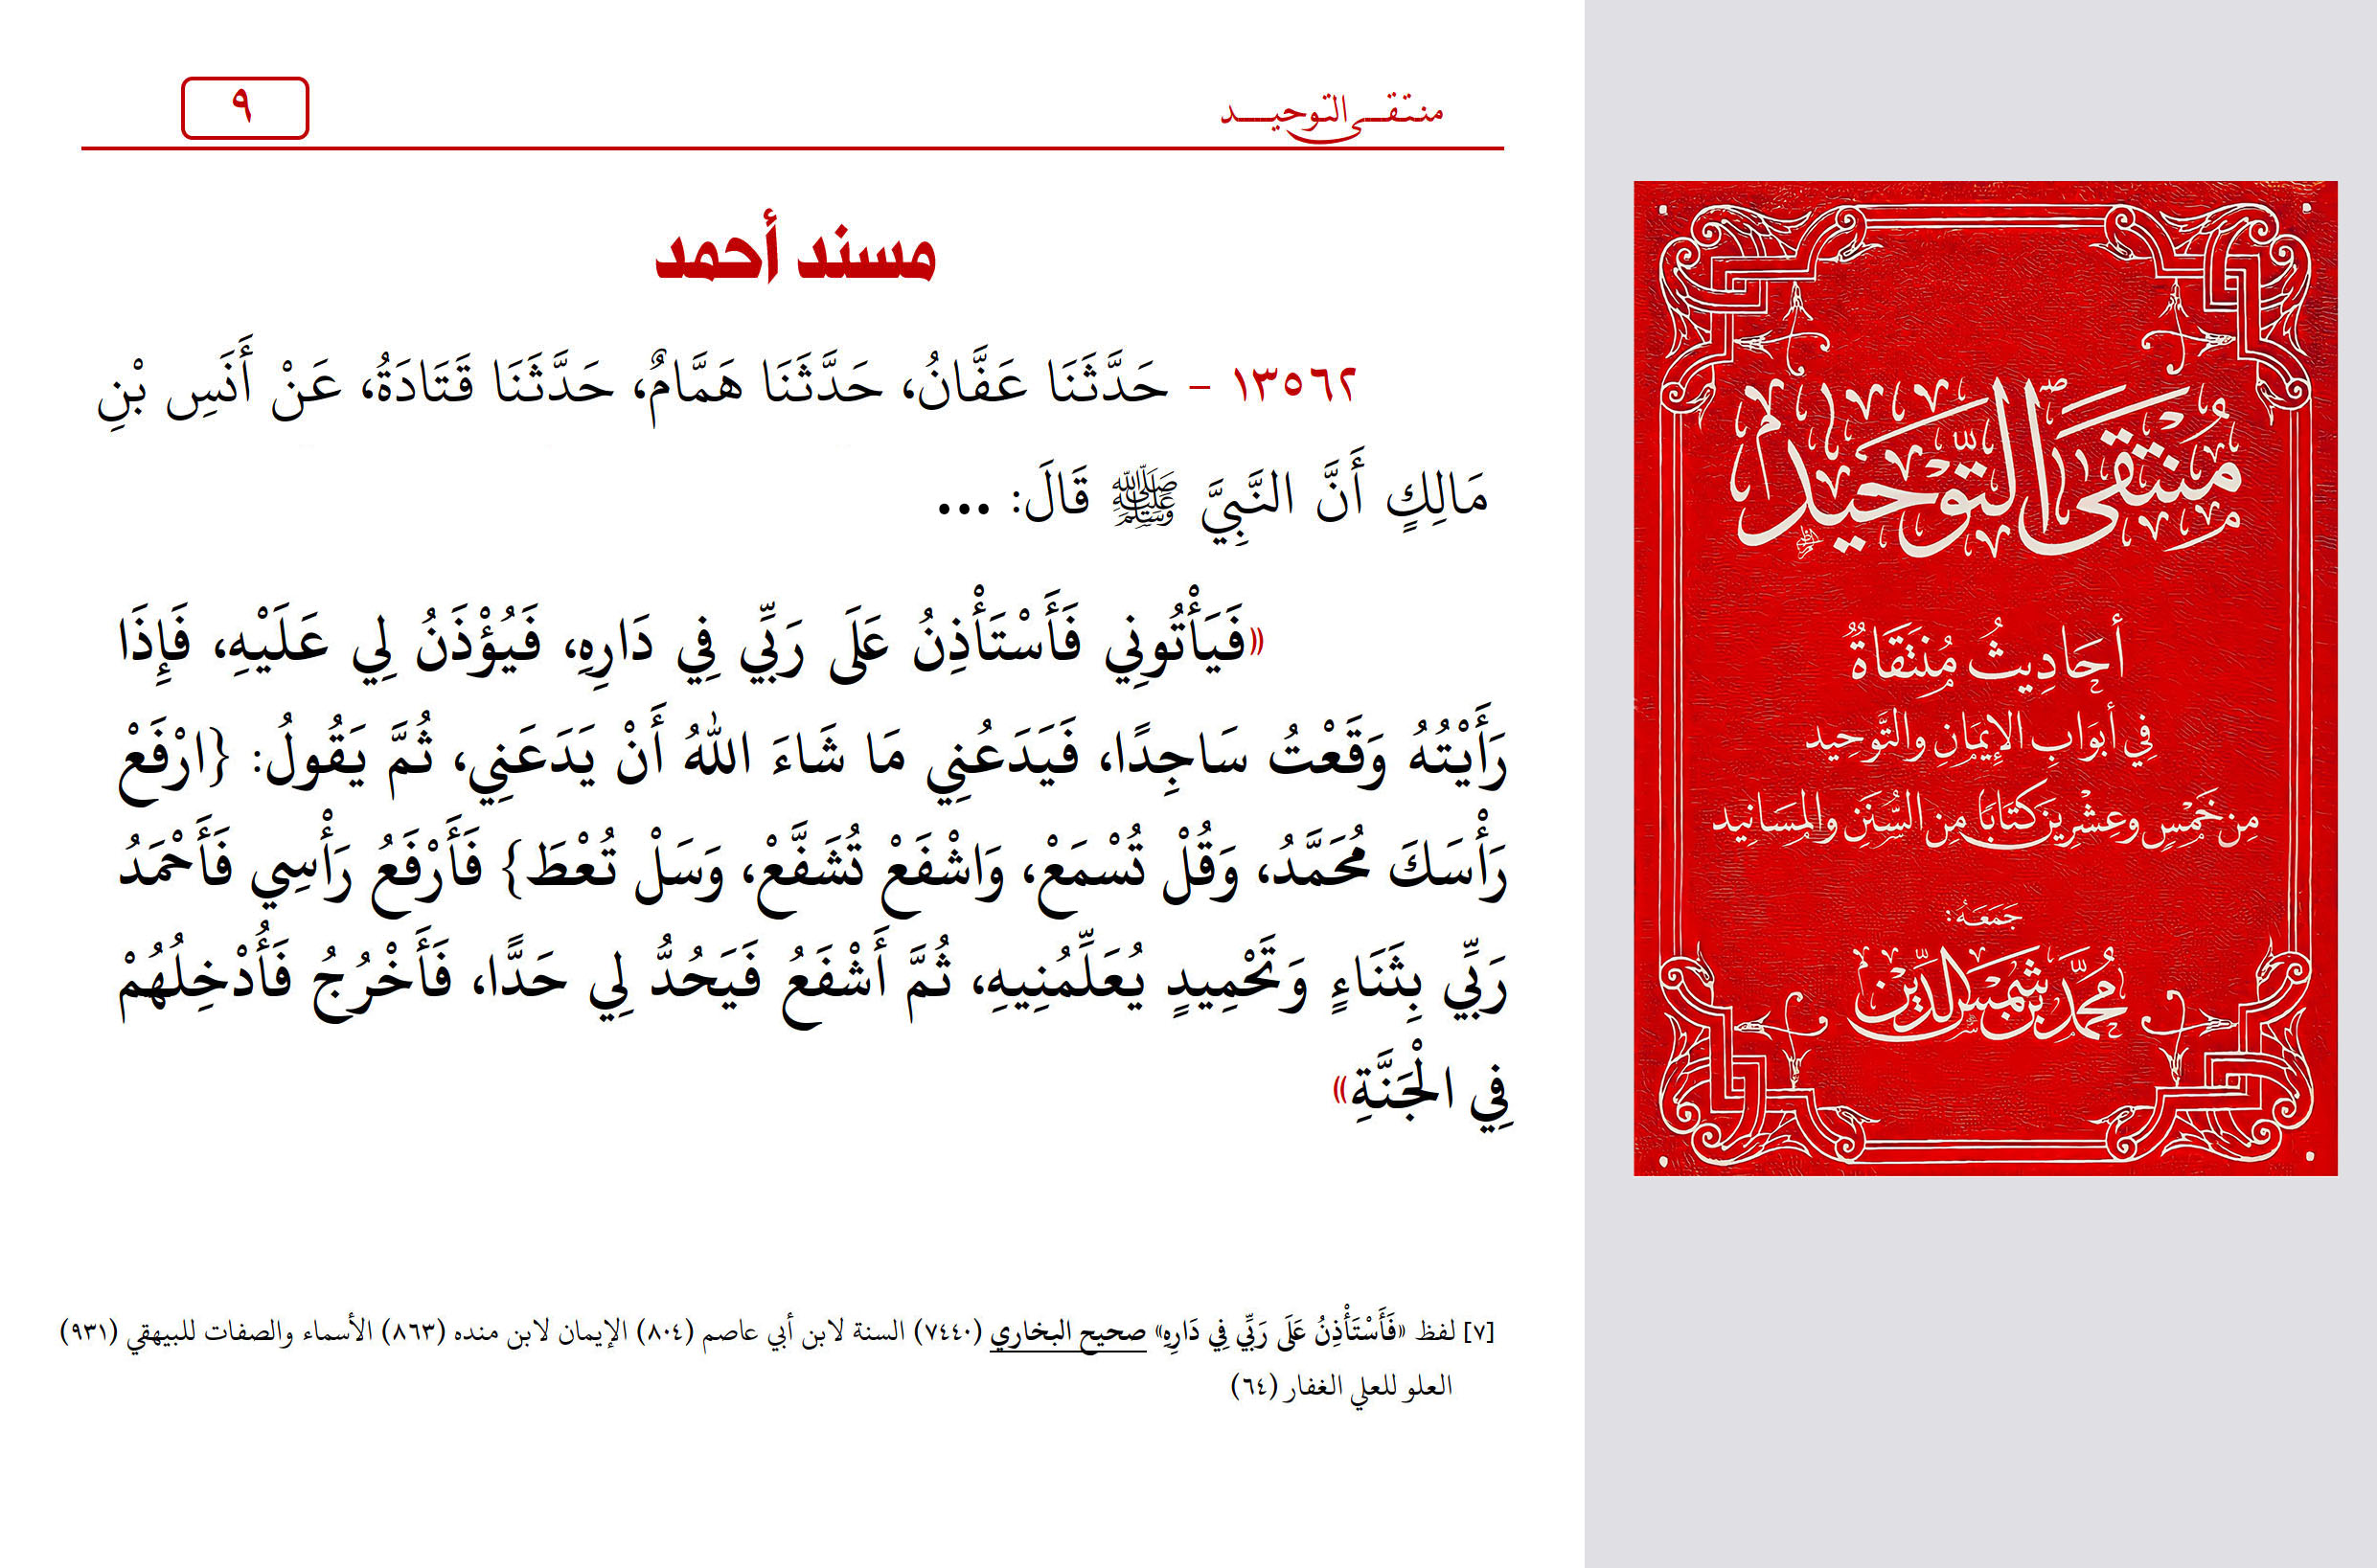 منتقى التوحيد
٩
مسند أحمد
١٣٥٦٢ - حَدَّثَنَا عَفَّانُ، حَدَّثَنَا هَمَّامٌ، حَدَّثَنَا قَتَادَةُ، عَنْ أَنَسِ بْنِ
مَالِكٍ أَنَّ النَّبِيَّ ﷺ قَالَ: ...
«فَيَأْتُونِي فَأَسْتَأْذِنُ عَلَى رَبِّي فِي دَارِهِ، فَيُؤْذَنُ لِي عَلَيْهِ، فَإِذَا
رَأَيْتُهُ وَقَعْتُ سَاجِدًا، فَيَدَعُنِي مَا شَاءَ اللهُ أَنْ يَدَعَنِي، ثُمَّ يَقُولُ: {ارْفَعْ
رَأْسَكَ مُحَمَّدُ، وَقُلْ تُسْمَعْ، وَاشْفَعْ تُشَفَّعْ، وَسَلْ تُعْطَ} فَأَرْفَعُ رَأْسِي فَأَحْمَدُ
رَبِّي بِثَنَاءٍ وَتَحْمِيدٍ يُعَلِّمُنِيهِ، ثُمَّ أَشْفَعُ فَيَحُدُّ لِي حَدًّا، فَأَخْرُجُ فَأُدْخِلُهُمْ
فِي الْجَنَّةِ»
[٧] لفظ «فَأَسْتَأْذِنُ عَلَى رَبِّي فِي دَارِهِ» صحيح البخاري (٧٤٤٠) السنة لابن أبي عاصم (٨٠٤) الإيمان لابن منده (٨٦٣) الأسماء والصفات للبيهقي (٩٣١)
العلو للعلي الغفار (٦٤)
مُنْتَقَى التَّوْحِيدِ
أَحَادِيثُ مُنْتَقَاةٌ
فِي أَبْوَابِ الإِيمَانِ والتَّوْحِيد
مِن خَمْسٍ وعِشْرِينَ كِتَابًا مِن السُّنَنِ والمسَانِيد
جَمَعَهُ:
مُحَمَّد بْن شَمْس الدِّين